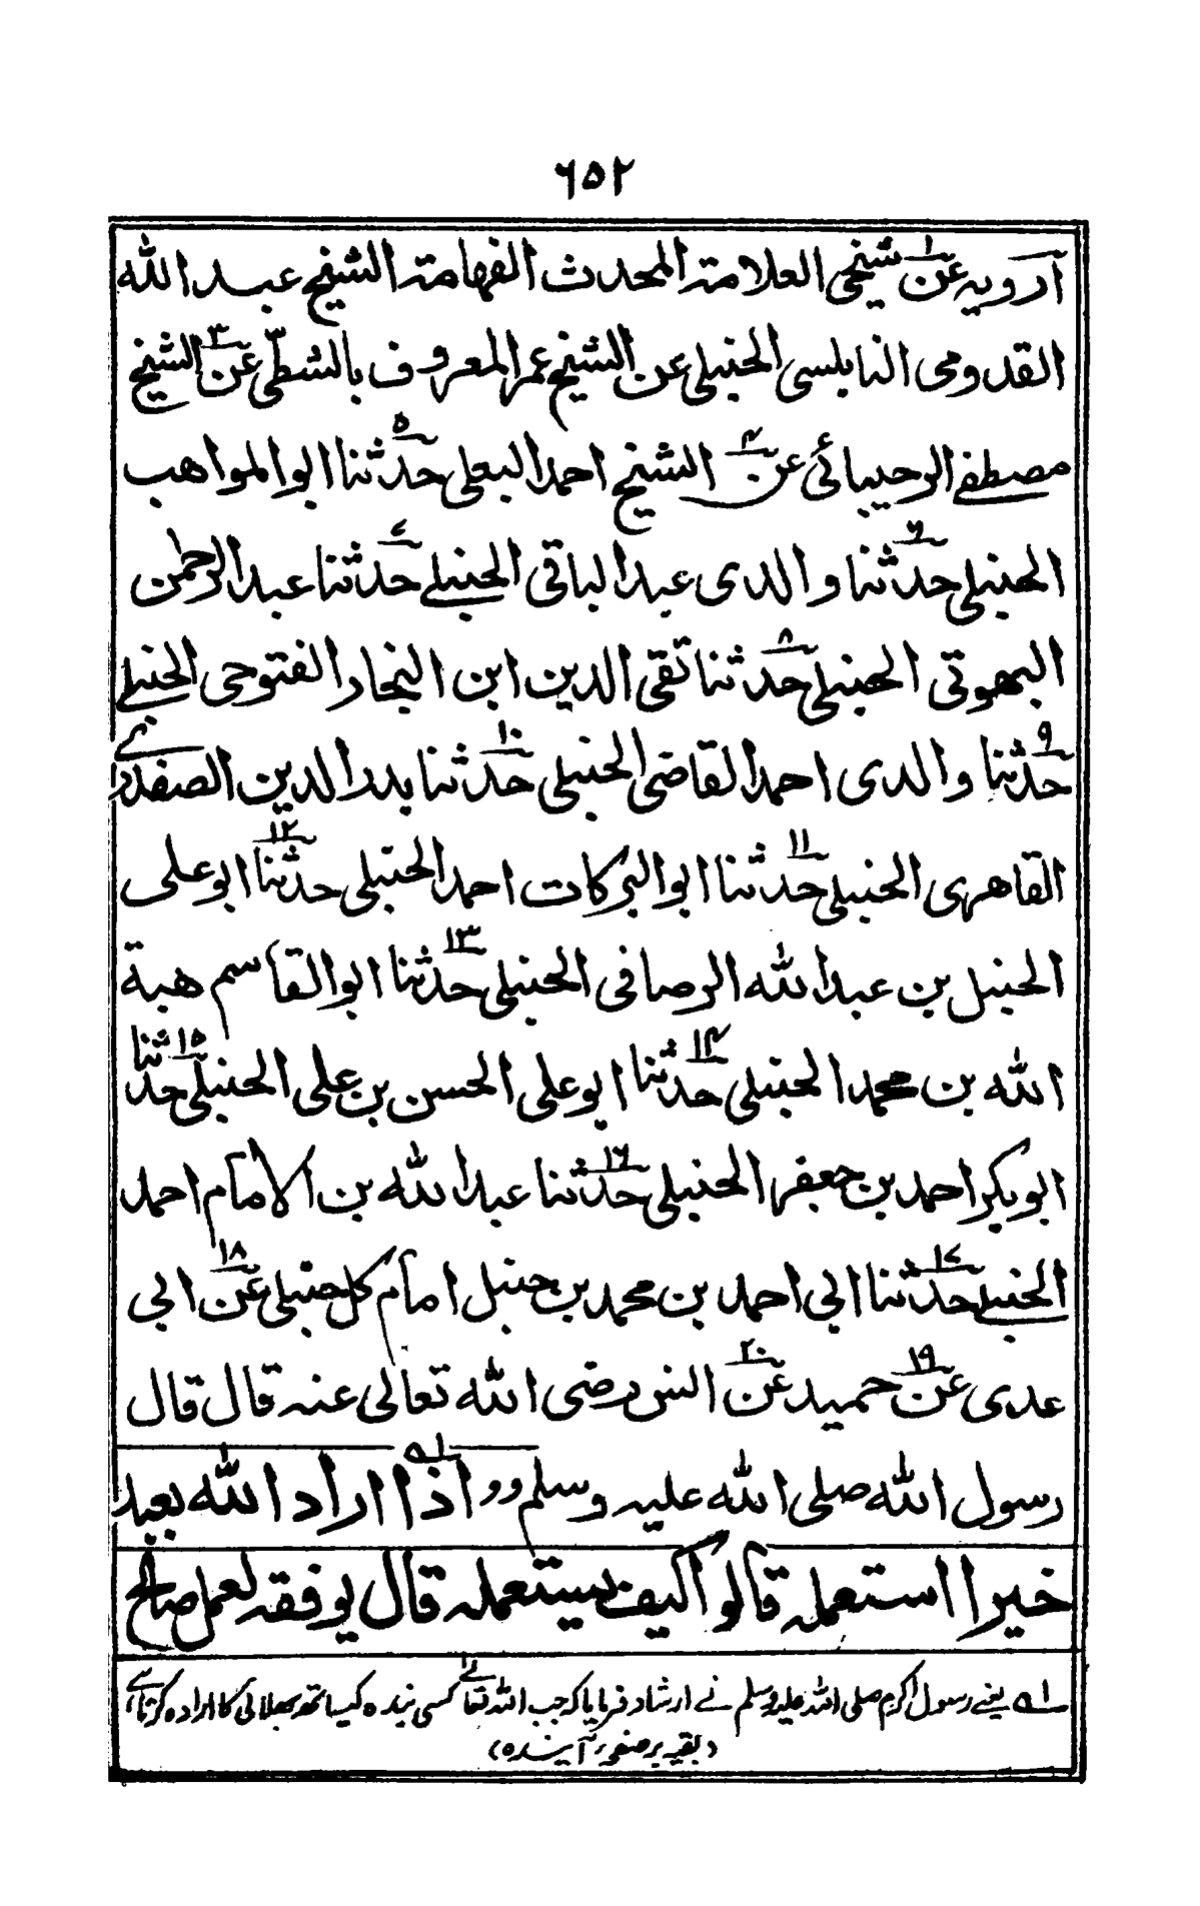 ٦٥٢
آرویہ عن۱ شیخی العلامۃ المحدث الفھامۃ الشیخ عبد اللہ
القدومی النابلسی الحنبلی عن الشیخ عمر المعروف بالشطّی عن۳ الشیخ
مصطفے الرحیبائی عن۴ الشیخ احمد البعلی حدثنا۵ ابو المواھب
الحنبلی حدثنا۶ والدی عبد الباقی الحنبلے حدثنا۷ عبد الرحمٰن
البھوتی الحنبلی حدثنا۸ تقی الدین ابن النجار الفتوحی الحنبلے
حدثنا۹ والدی احمد القاضی الحنبلی حدثنا۱۰ بدر الدین الصفدے
القاھری الحنبلی حدثنا۱۱ ابو البرکات احمد الحنبلی حدثنا۱۲ ابو علی
الحنبل بن عبد اللہ الرصافی الحنبلی حدثنا۱۳ ابو القاسم ھبۃ
اللہ بن محمد الحنبلی حدثنا۱۴ ابو علی الحسن بن علی الحنبلی حدثنا۱۵
ابو بکر احمد بن جعفر الحنبلی حدثنا۱۶ عبد اللہ بن الامام احمد
الحنبلے حدثنا۱۷ ابی احمد بن محمد بن حنبل امام کل حنبلی عن۱۸ ابی
عدی عن۱۹ حمید عن۲۰ انس رضی اللہ تعالیٰ عنہ قال قال
رسول اللہ صلی اللہ علیہ وسلم وو اذا۱ہ اراد اللہ بعبد
خیرا استعملہ قالوا کیف یستعملہ قال یوفقہ لعمل صالح
۱ہ یعنے رسول اکرم صلی اللہ علیہ وسلم نے ارشاد فرمایا کہ جب اللہ تعالےٰ کسی بندہ کیساتھ بھلائی کا ارادہ کرتا ہے،
(بقیہ بر صفحہ آیندہ)